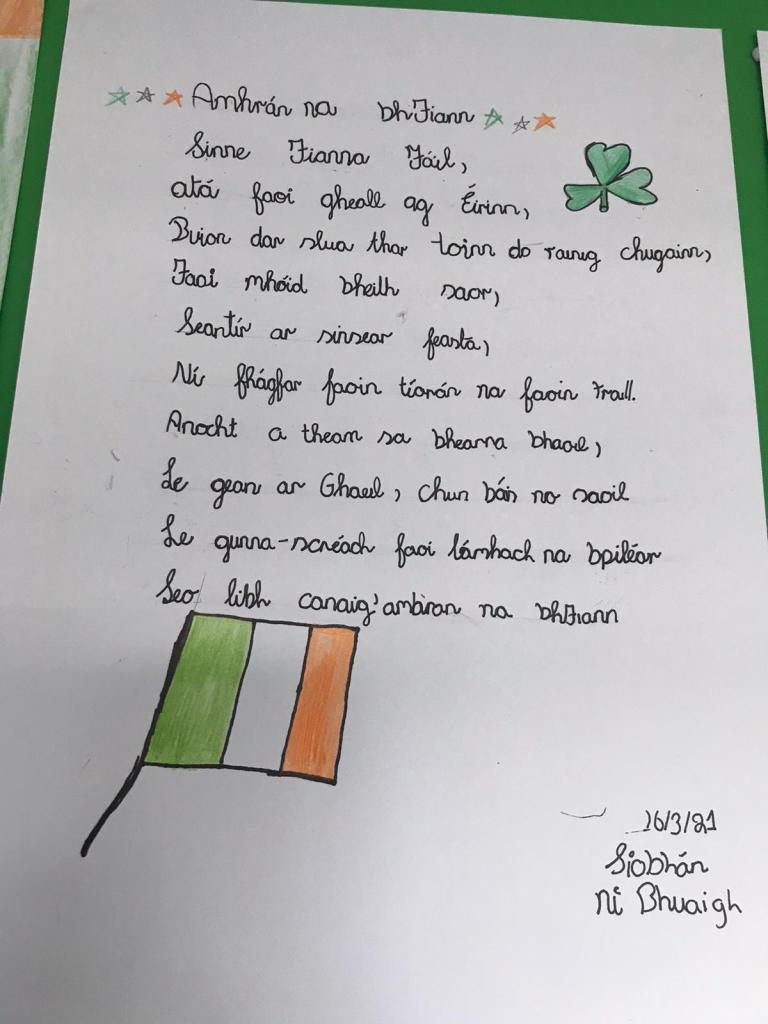 Amhrán na bhFiann
Sinne Fianna Fáil,
atá faoi gheall ag Éirinn,
Buíon dar slua thar toinn do ráinig chugainn,
Faoi mhóid bheith saor,
Seantír ar sinsear feasta,
Ní fhágfar faoin tíorán na faoin tráill.
Anocht a theam sa bhearna bhaoil,
Le gean ar Ghaeil, chun báis no saoil
Le gunna-scréach faoi lámhach na bpiléar
Seo libh canaig' amhran na bhFiann
16/3/21
Siobhán
Ní Bhuaigh